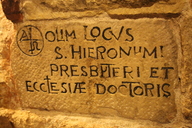 OLIM LOCVS
S. HIERONYMI
PRESBYTERI ET
ECCLESIÆ DOCTORIS